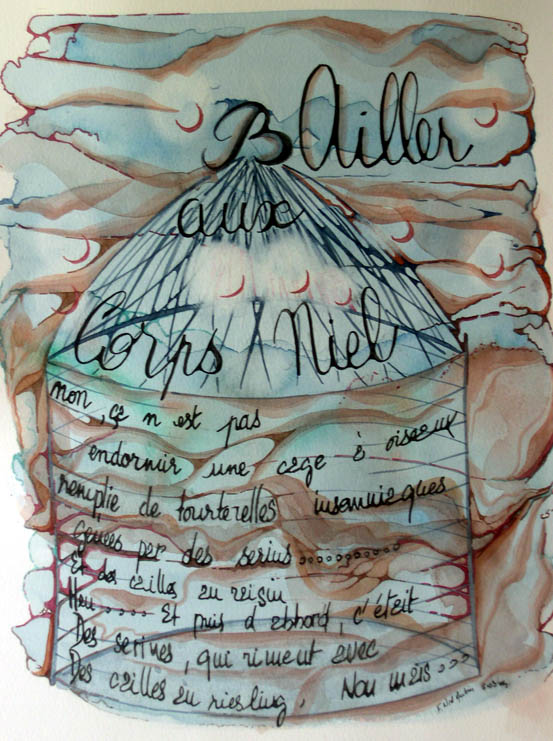 BAiller
aux
Corps Niel
non, ce n est pas
endormir une cage à oiseaux
remplie de tourterelles insomniaques
gênées par des serins..........
Et des cailles au raisin
Heu..... Et puis d abbord, c'était
Des serines, qui riment avec
Des cailles au riesling. Non mais ...